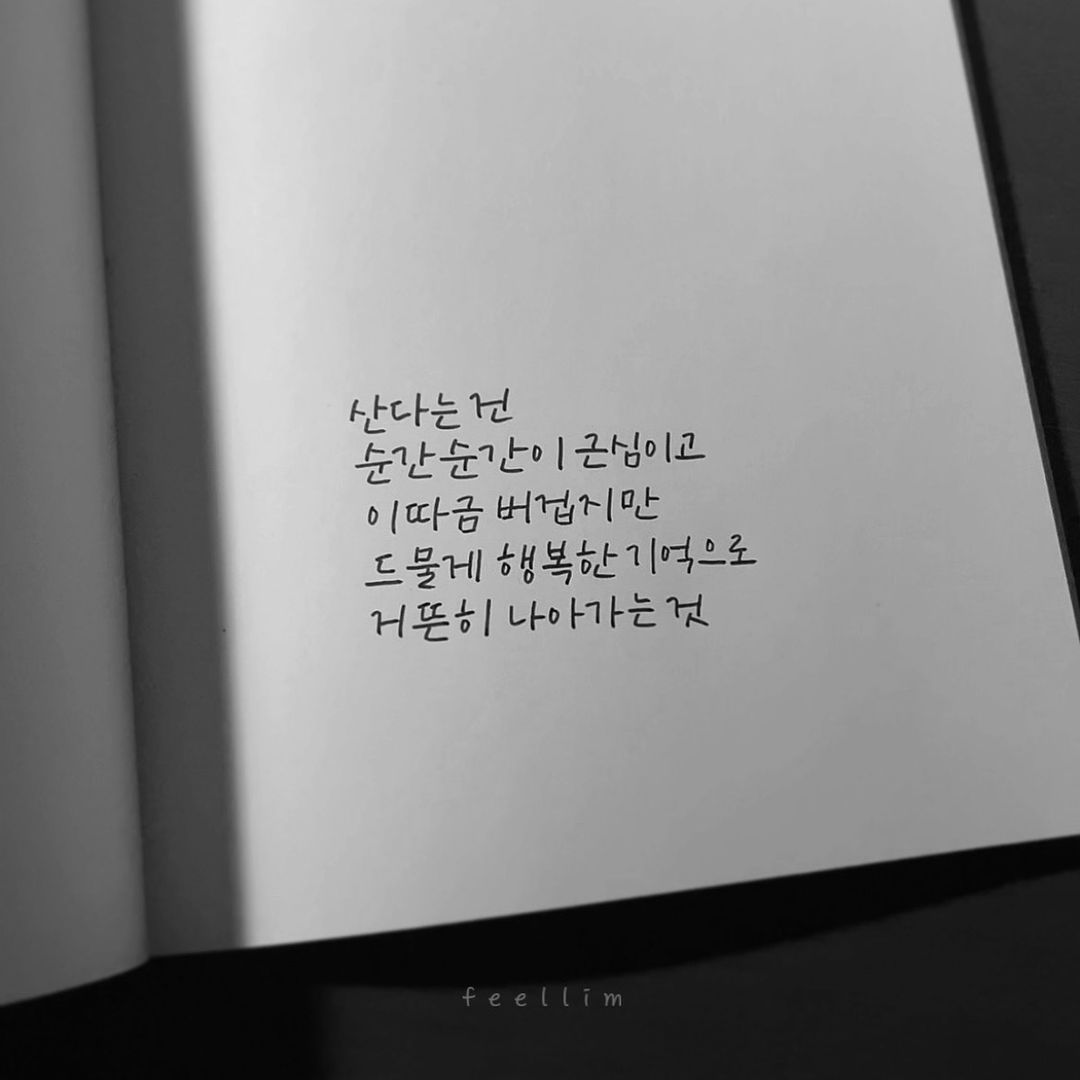 산다는 건
순간순간이 근심이고
이따금 버겁지만
드물게 행복한 기억으로
거뜬히 나아가는 것
feellim